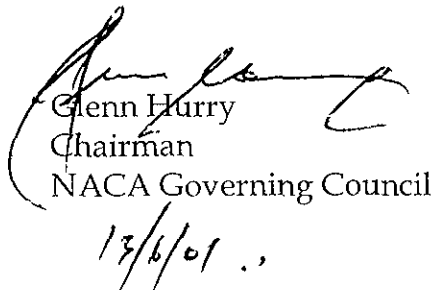 Glenn Hurry
Chairman
NACA Governing Council
13/6/01